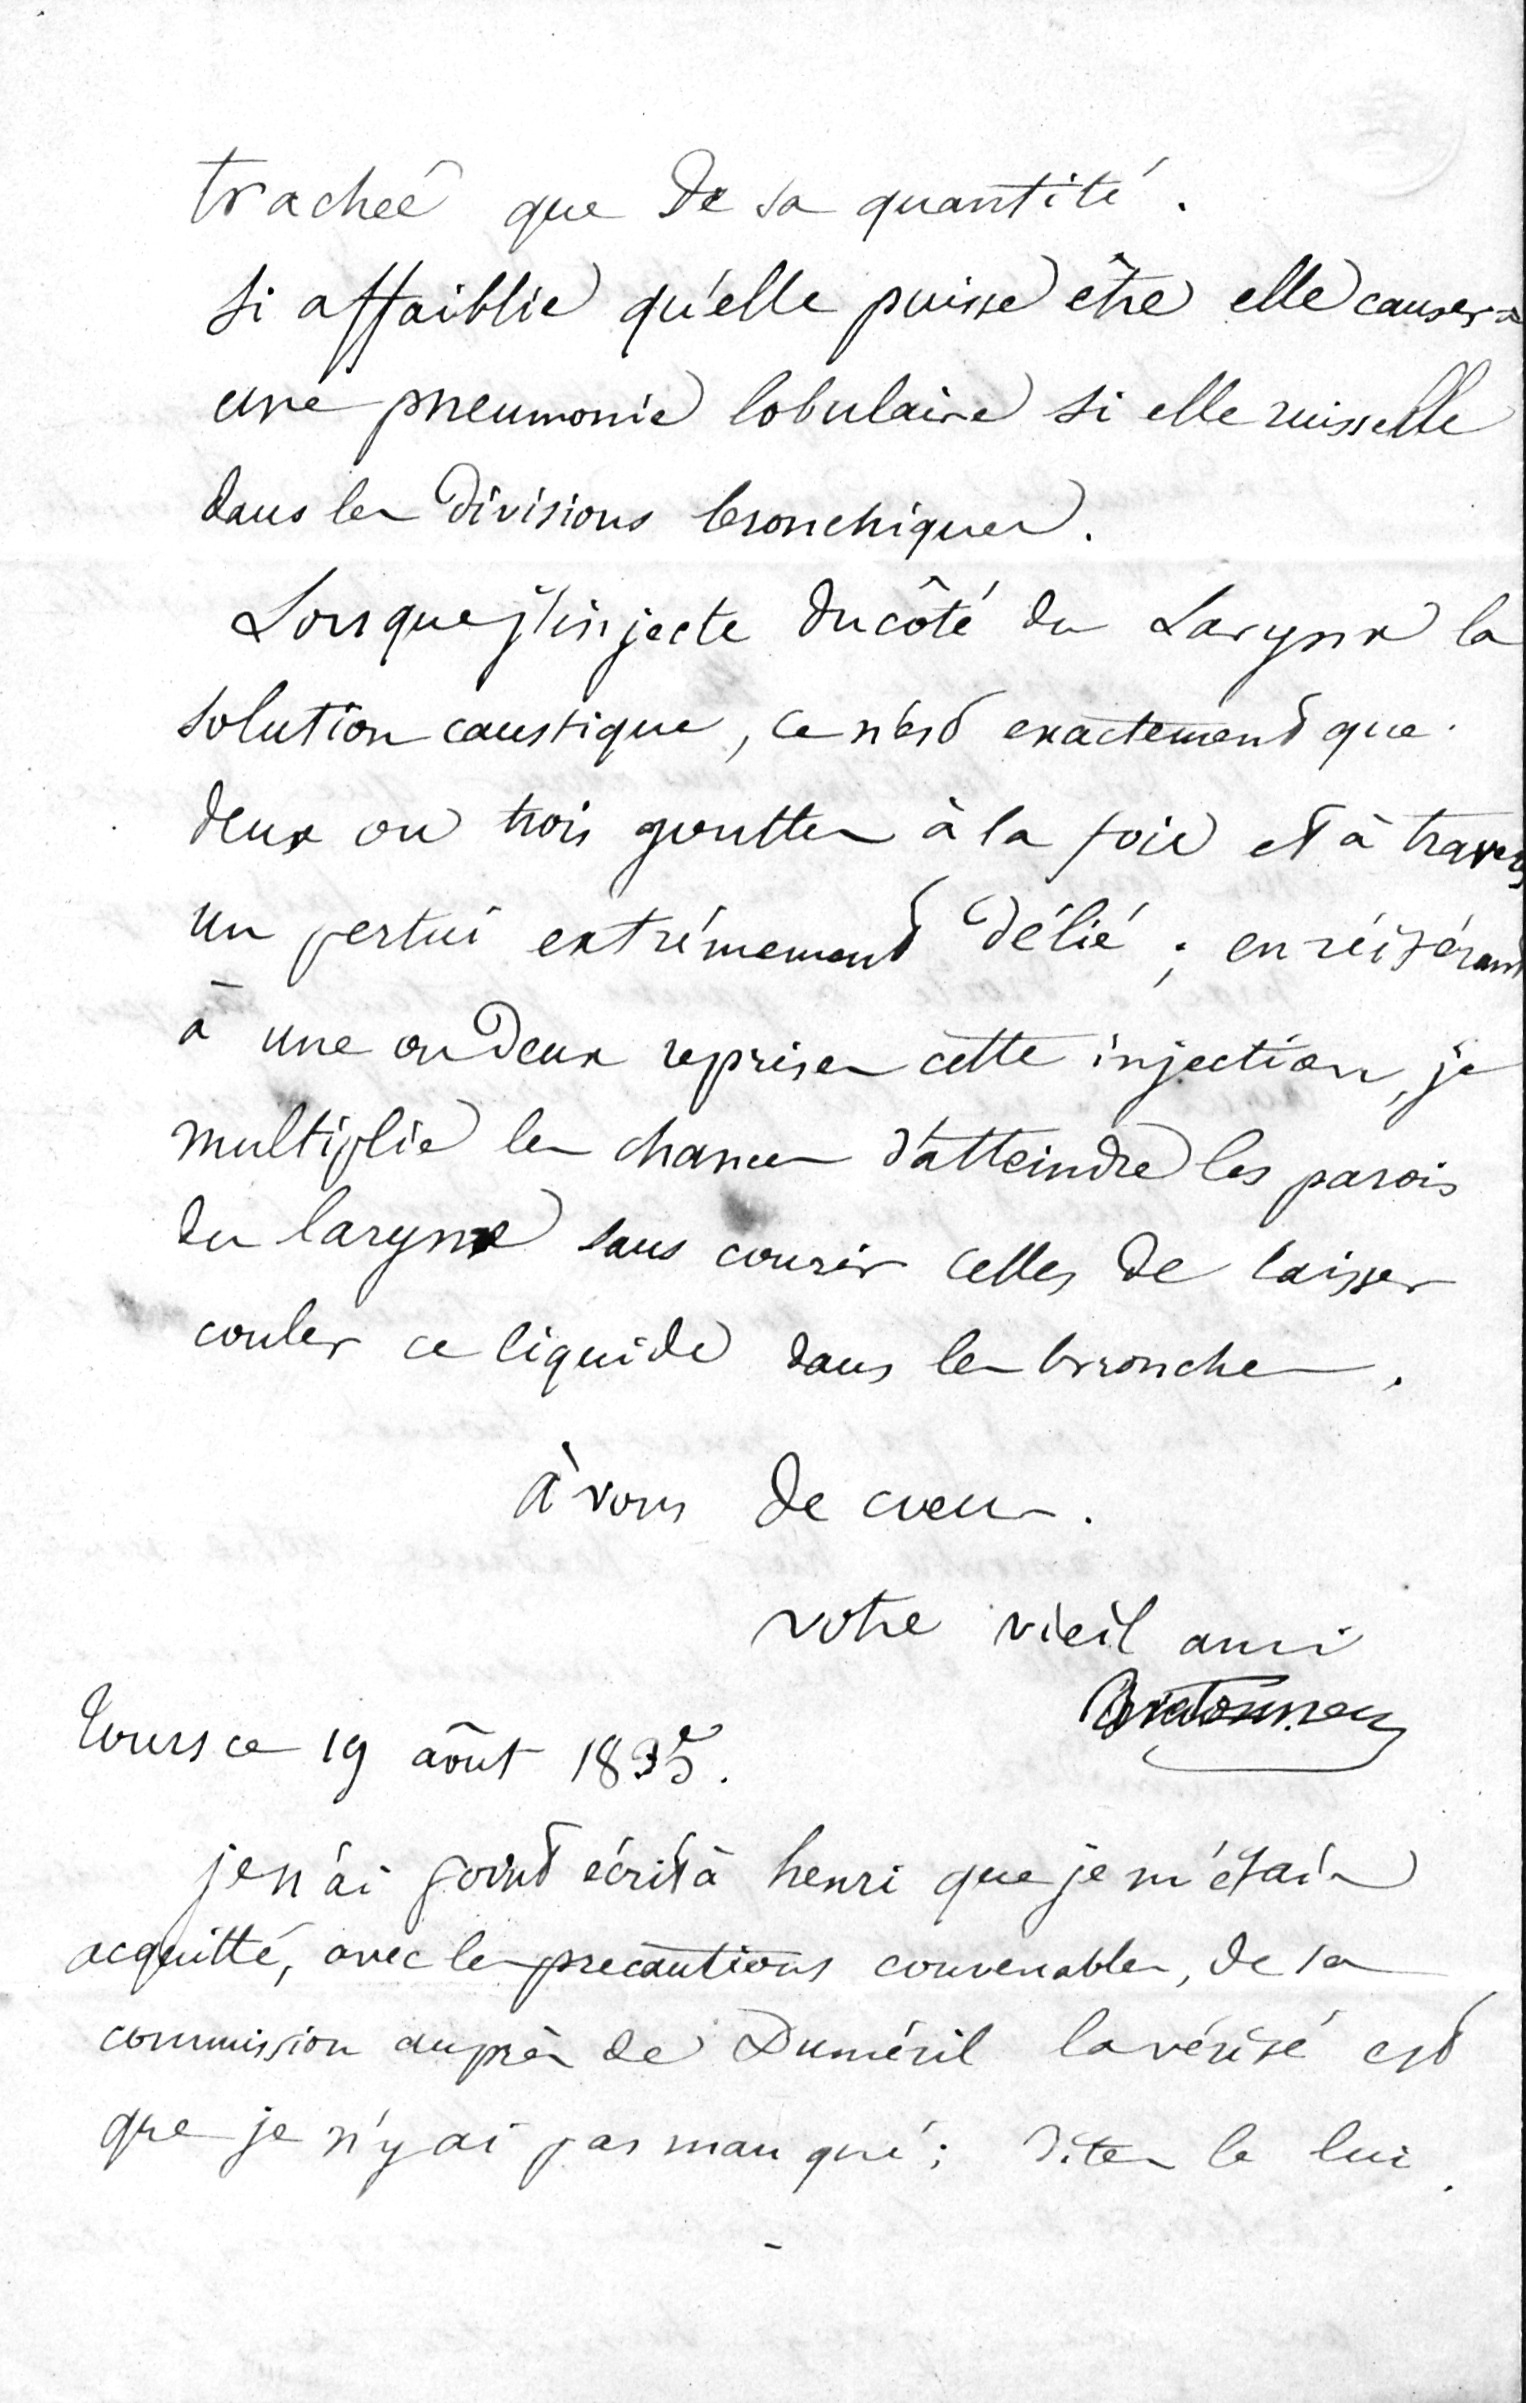 trachée que de sa quantité.
Si affaiblie qu'elle puisse être elle causera
une pneumonie lobulaire si elle ruisselle
dans les divisions bronchiques.
Lorsque j'injecte du côté du Larynx la
solution caustique, ce n'est exactement que
deux ou trois gouttes à la fois et à travers
un pertui extrémement délié ; en réitérant
à une ou deux reprises cette injection, je
multiplie les chances d'atteindre les parois
du larynx sans courir celles de laisser
couler ce liquide dans les bronches.
à vous de cœur.
votre vieil ami
Bretonneau
Tours ce 19 août 1835.
je n'ai point écrit à henri que je m'étais
acquitté, avec les precautions convenables, de sa
commission auprès de Duméril la vérité est
que je n'y ai pas manqué ; dites le lui.